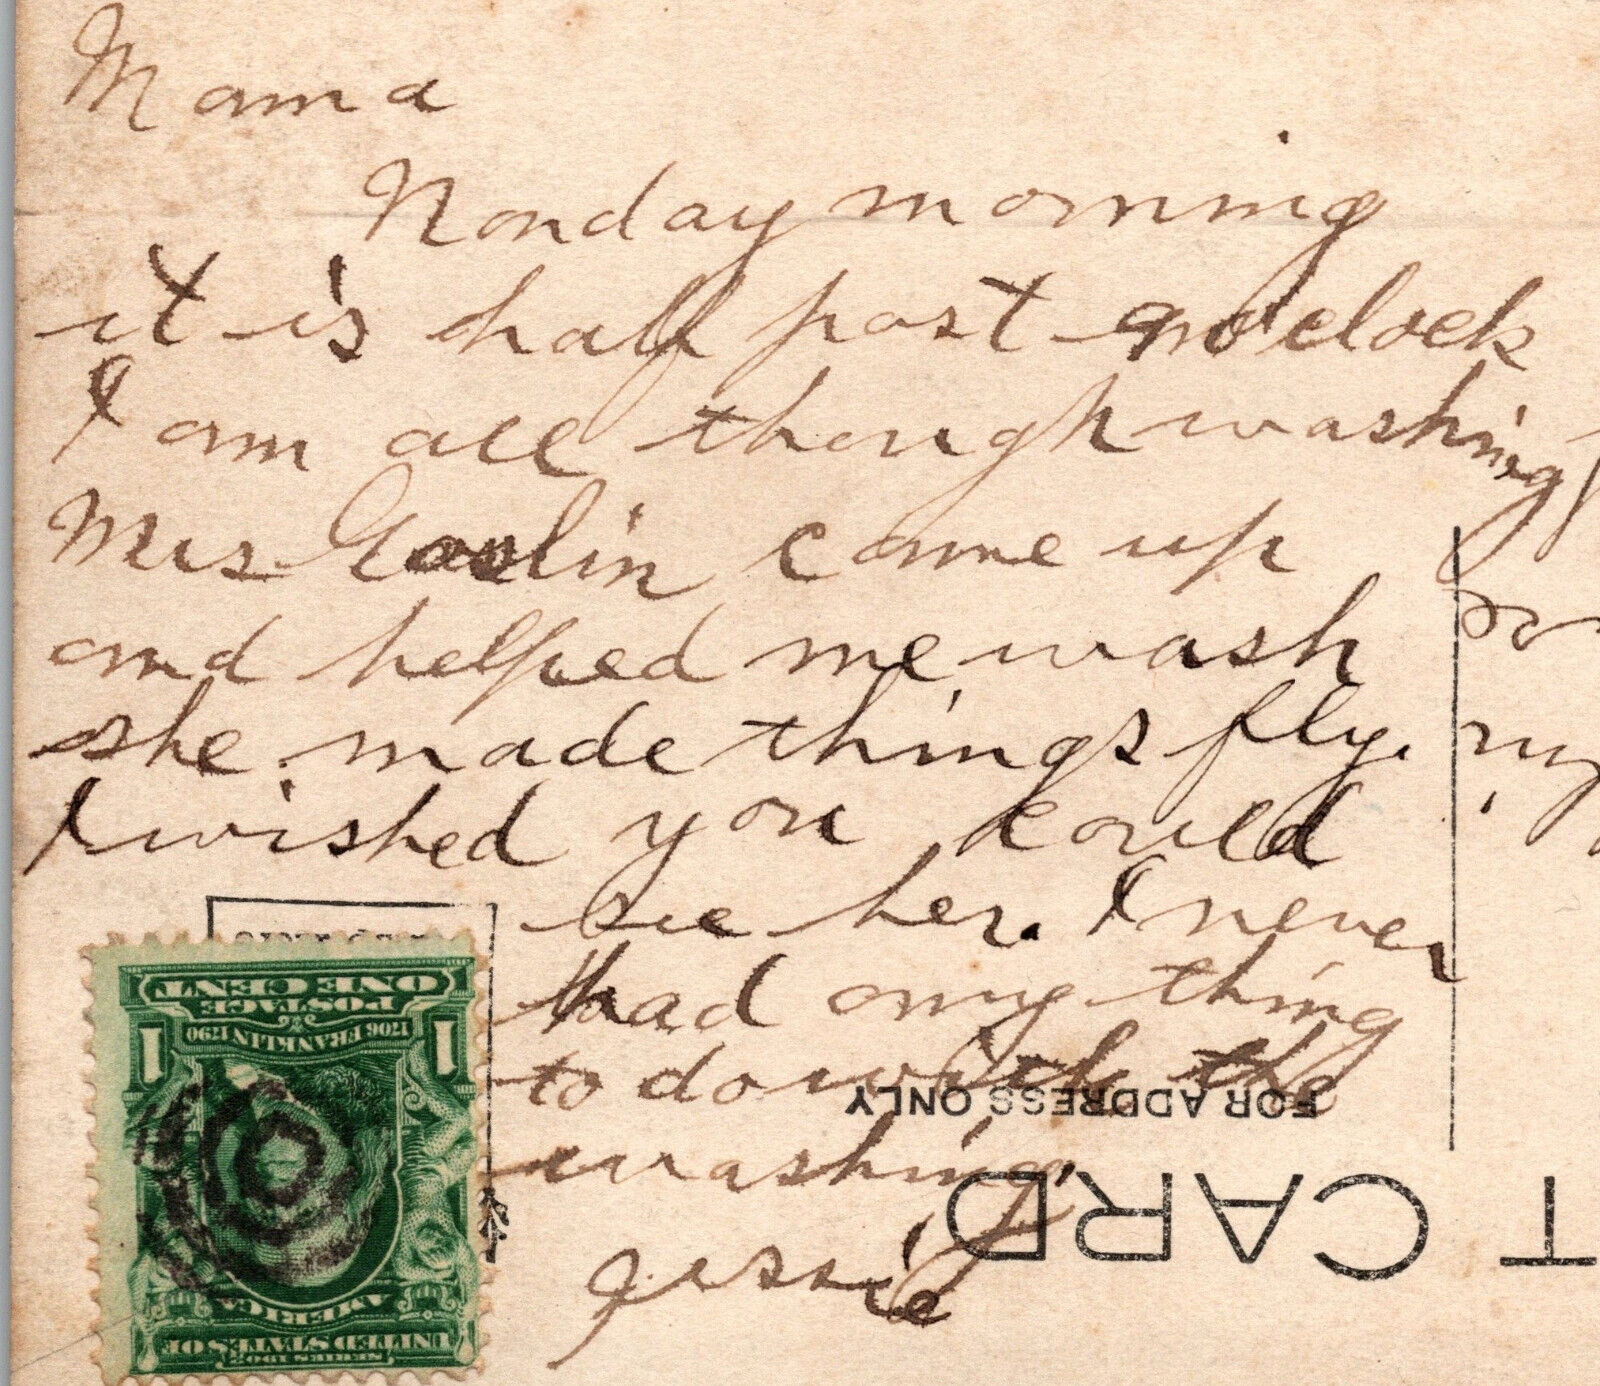 Mama
Monday morning
it is half past o'clock
I am all though washing
Mrs Goslin came up
and helped me wash
she made things fly.
I wished you could
see her. I never
had any thing
to do with the
washing.
Jessie
FOR ADDRESS ONLY
T CARD
ONE CENT
POSTAGE
1706 FRANKLIN 1790
1 1
AMERICA
UNITED STATES OF
SERIES 1902